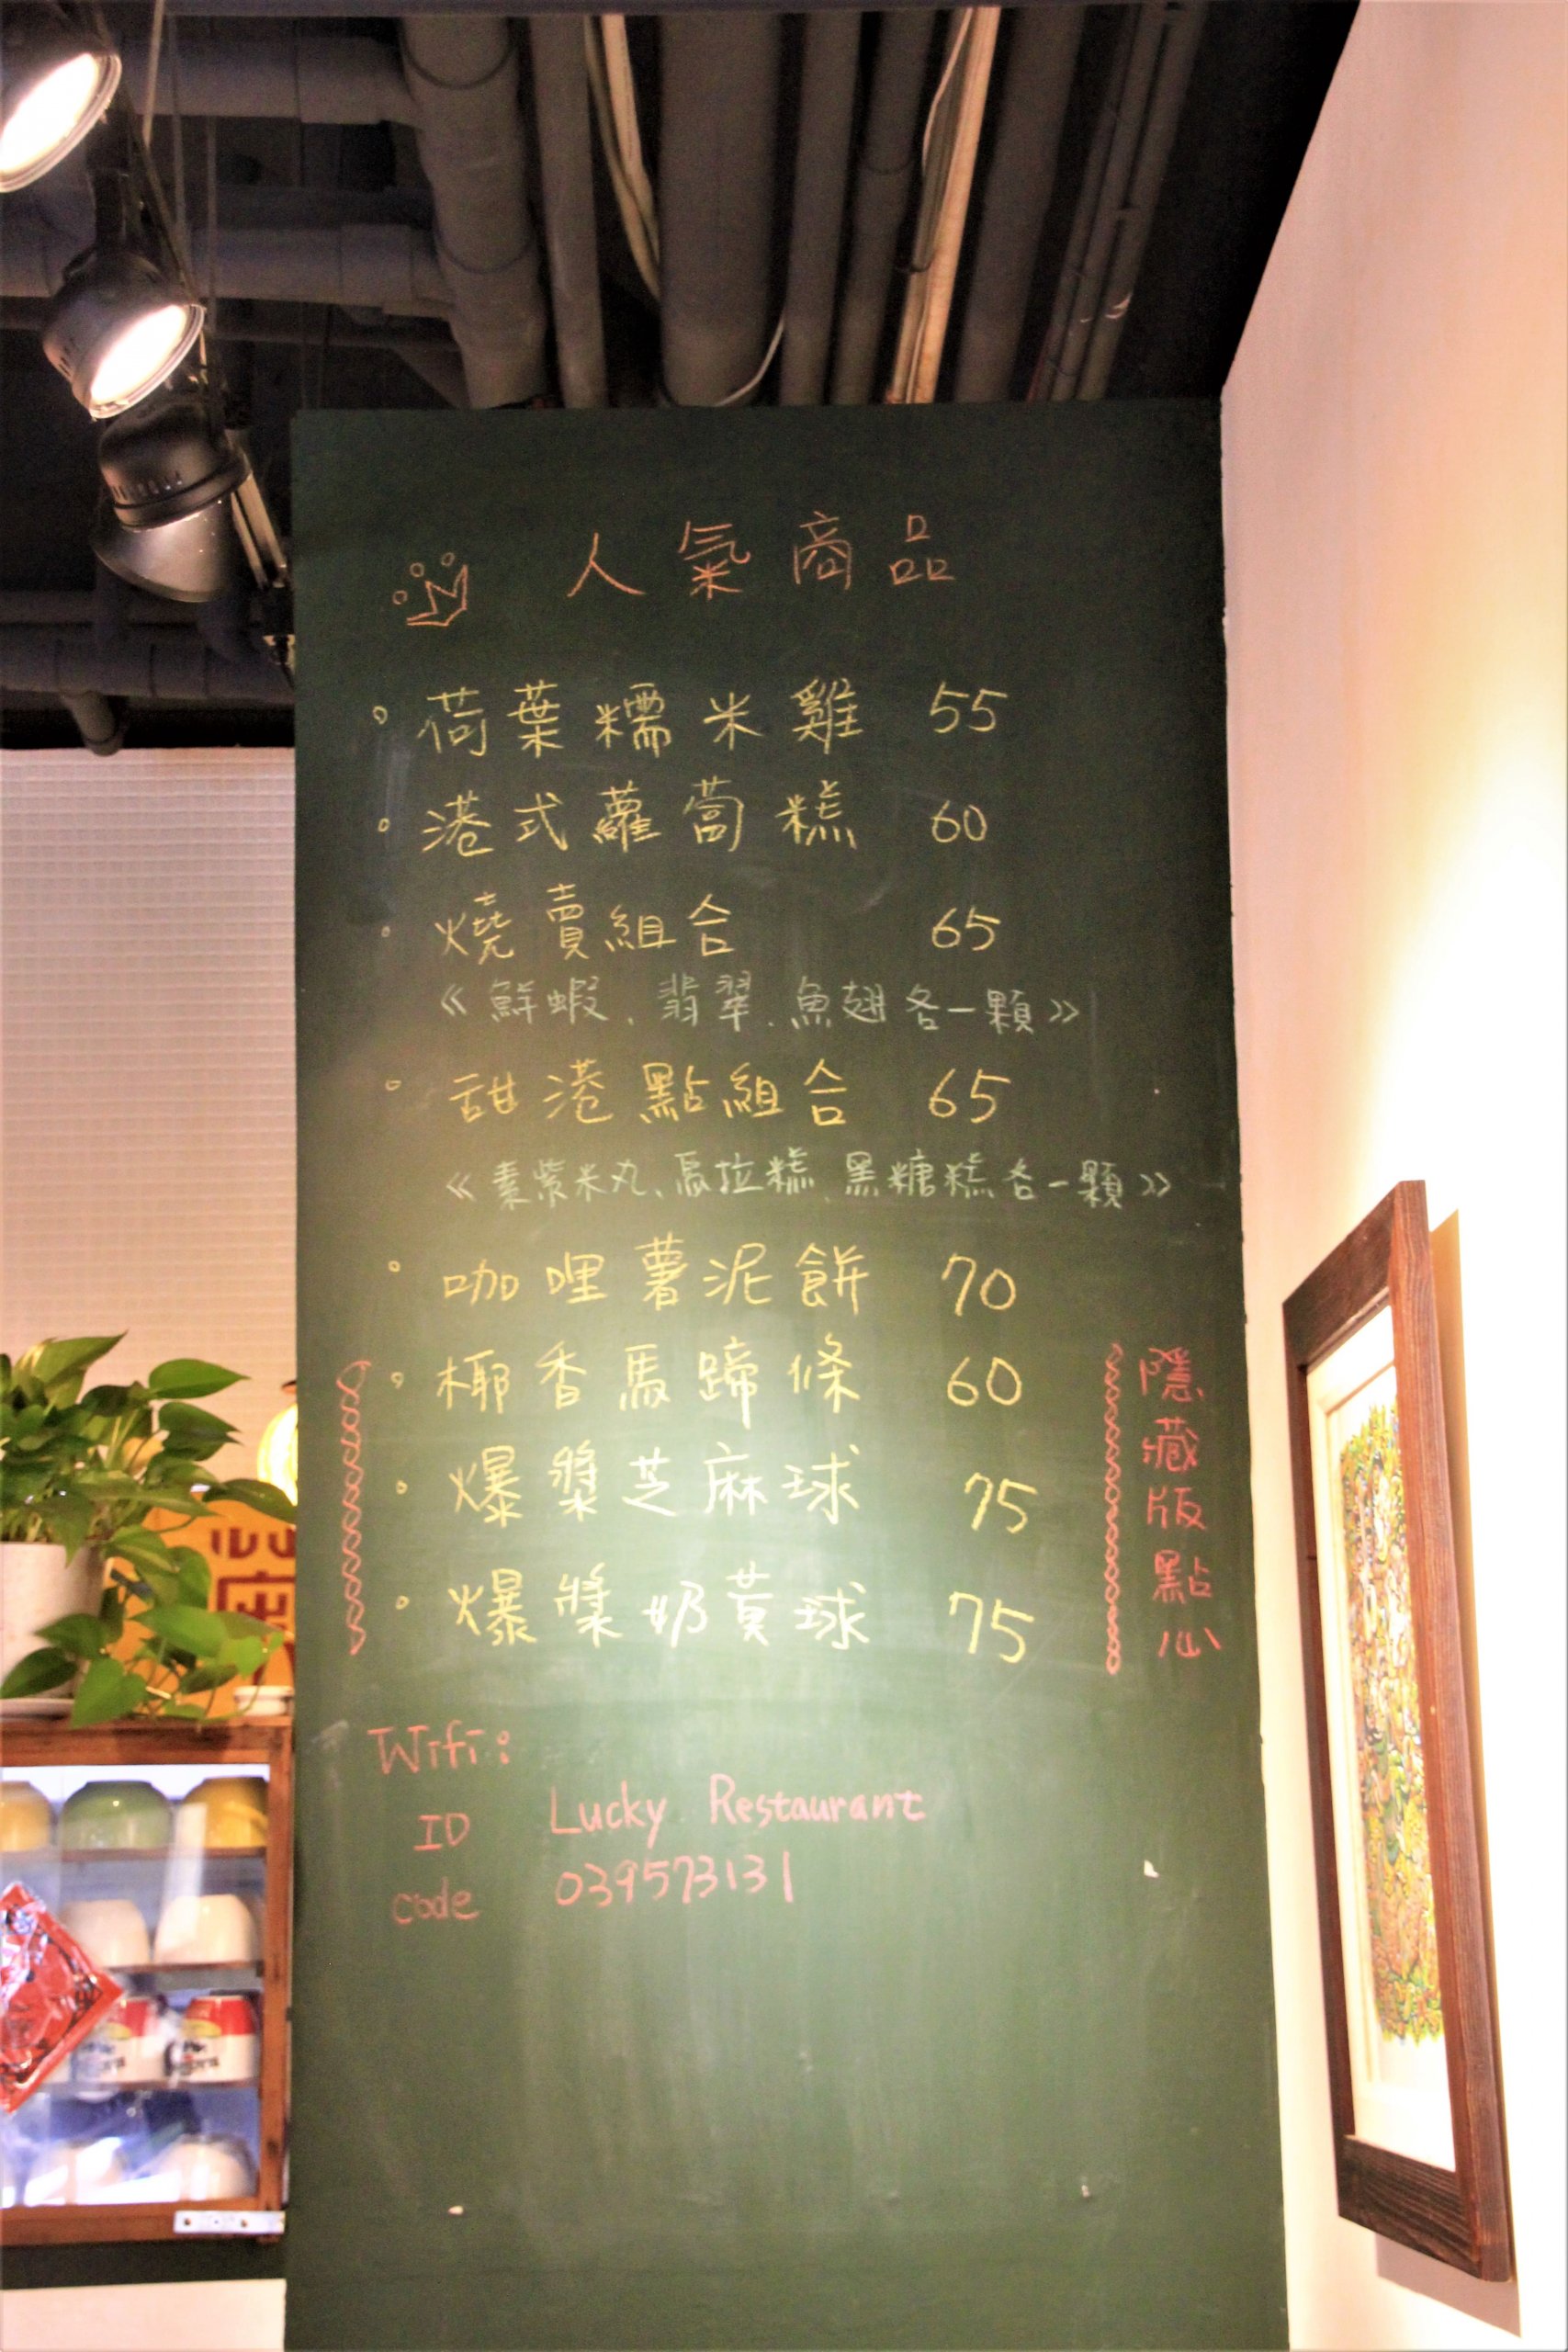 人氣商品
荷葉糯米雞 55
港式蘿蔔糕 60
燒賣組合 65
《鮮蝦、翡翠、魚翅各一顆》
甜港點組合 65
《素紫米丸、馬拉糕、黑糖糕各一顆》
咖哩薯泥餅 70
椰香馬蹄條 60
爆漿芝麻球 75
爆漿奶黃球 75
隱藏版點心
Wifi:
ID Lucky Restaurant
code 039573131